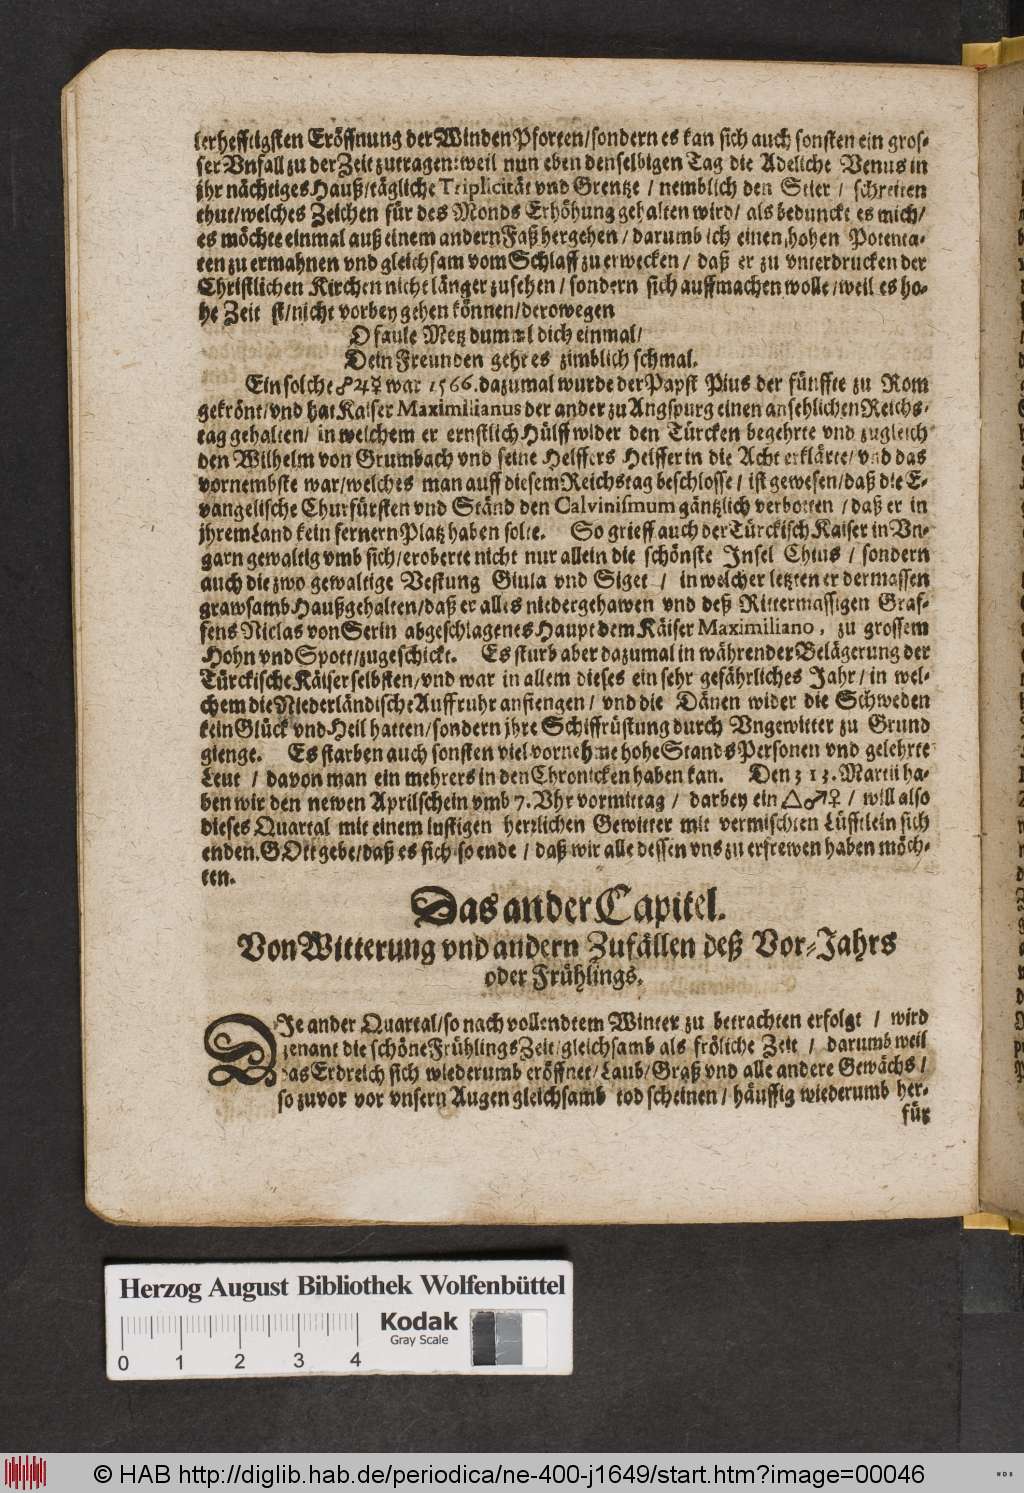 lerhefftigsten Eröffnung der Winden Pforten/sondern es kan sich auch sonsten ein gros-
ser Vnfall zu der Zeit zutragen: weil nun eben denselbigen Tag die Adeliche Venus in
jhr nächtiges Hauß/tägliche Triplicität vnd Grentze / nemblich den Stier / schreiten
thut/welches Zeichen für des Monds Erhöhung gehalten wird/ als bedunckt es mich/
es möchte einmal auß einem andern Faß hergehen / darumb ich einen hohen Potenta-
ten zu ermahnen vnd gleichsam vom Schlaff zu erwecken / daß er zu vnterdrucken der
Christlichen Kirchen nicht länger zusehen / sondern sich auffmachen wolle /weil es ho-
he Zeit st/nicht vorbey gehen können/derowegen
O faule Metz dummel dich einmal/
Dein Freunden geht es zimblich schmal.
Ein solche ☍♃☿ war 1566. dazumal wurde der Papst Pius der fünffte zu Rom
gekrönt/vnd hat Kaiser Maximilianus der ander zu Augspurg einen ansehlichen Reichs-
tag gehalten/ in welchem er ernstlich Hülff wider den Türcken begehrte vnd zugleich
den Wilhelm von Grumbach vnd seine Helffers Helffer in die Acht erklärte/ vnd das
vornembste war/welches man auff diesem Reichstag beschlosse / ist gewesen/daß die E-
vangelische Churfürsten vnd Ständ den Calvinismum gäntzlich verbotten / daß er in
jhrem Land kein fernern Platz haben solte. So grieff auch der Türckisch Kaiser in Vn-
garn gewaltig vmb sich/eroberte nicht nur allein die schönste Insel Chius / sondern
auch die zwo gewaltige Vestung Giula vnd Siget / in welcher letzten er dermassen
grawsamb Haußgehalten/daß er alles niedergehawen vnd deß Rittermassigen Graf-
fens Niclas von Serin abgeschlagenes Haupt dem Käiser Maximiliano, zu grossem
Hohn vnd Spott/zugeschickt. Es sturb aber dazumal in währender Belägerung der
Türckische Käiser selbsten/vnd war in allem dieses ein sehr gefährliches Jahr/ in wel-
chem die Niederländische Auffruhr anfiengen / vnd die Dänen wider die Schweden
kein Glück vnd Heil hatten/sondern jhre Schiffrüstung durch Vngewitter zu Grund
gienge. Es starben auch sonsten viel vornehme hohe Stands Personen vnd gelehrte
Leut / davon man ein mehrers in den Chronicken haben kan. Den 3 13. Martii ha-
ben wir den newen Aprilschein vmb 7. Vhr vormittag / darbey ein △♂♀ / will also
dieses Quartal mit einem lustigen herrlichen Gewitter mit vermischten Lüfftlein sich
enden. GOtt gebe/daß es sich so ende / daß wir alle dessen vns zu erfrewen haben möch-
ten.
Das ander Capitel.
Von Witterung vnd andern Zufällen deß Vor-Jahrs
oder Frühlings.
DJe ander Quartal/so nach vollendtem Winter zu betrachten erfolgt / wird
genant die schöne Frühlings Zeit/gleichsamb als fröliche Zeit / darumb weil
das Erdreich sich wiederumb eröffnet/Laub/Graß vnd alle andere Gewächs /
so zuvor vor vnsern Augen gleichsamb tod scheinen / häuffig wiederumb her-
für
Herzog August Bibliothek Wolfenbüttel
Kodak
Gray Scale
0 1 2 3 4
© HAB http://diglib.hab.de/periodica/ne-400-j1649/start.htm?image=00046